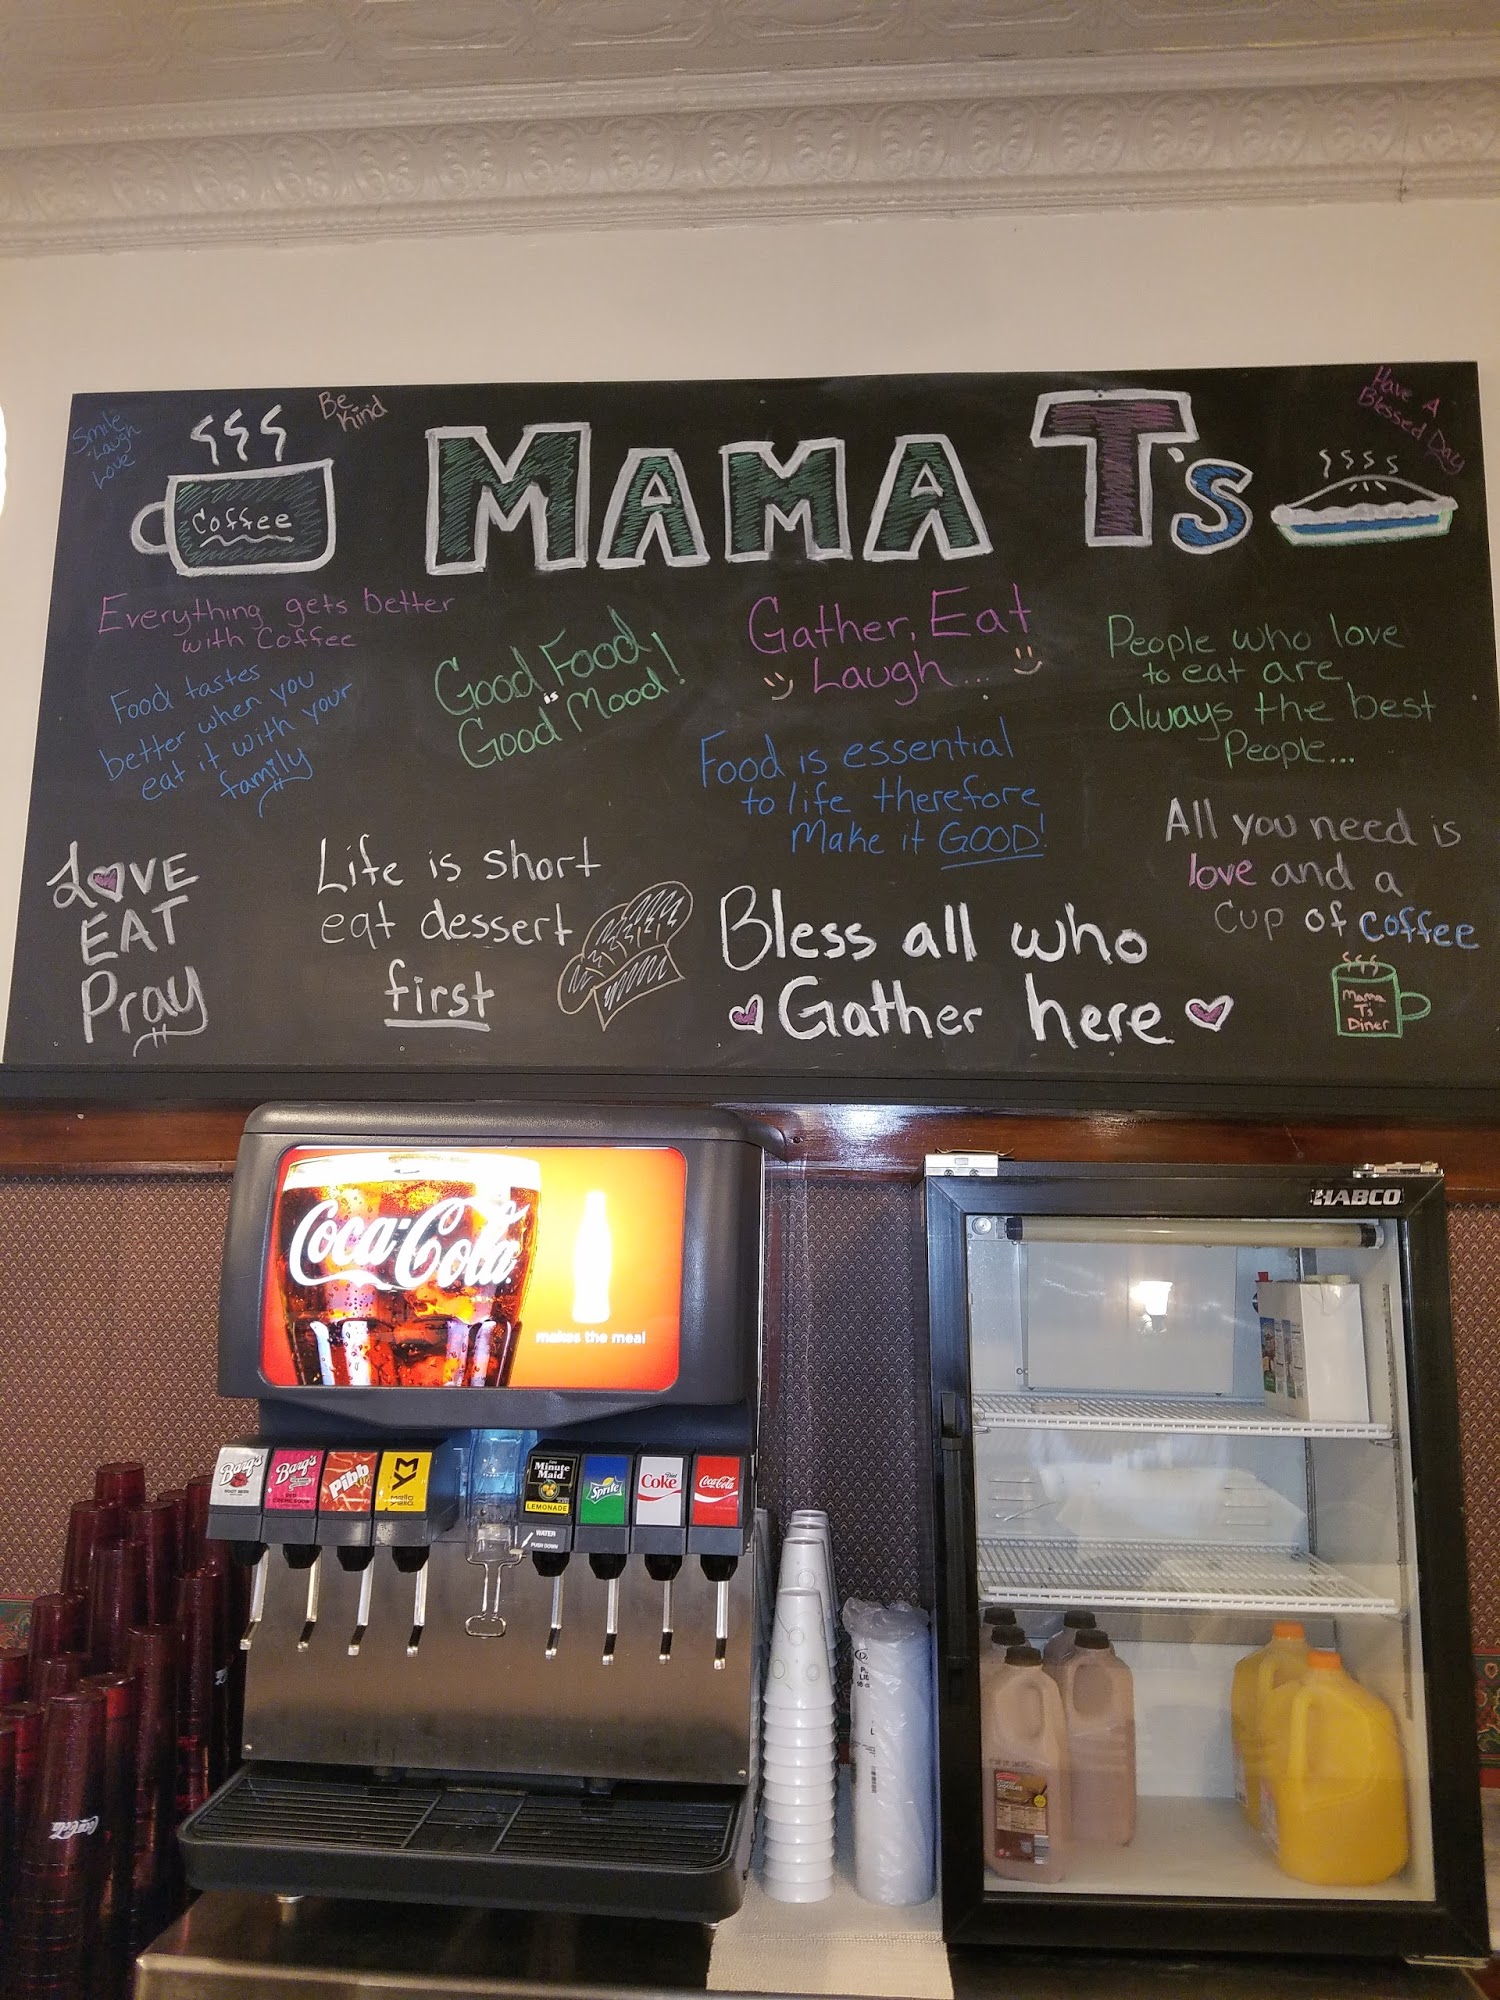 Smile
Laugh
Love
Be
Kind
Coffee
MAMA T's
Have A
Blessed Day
Everything gets better
with Coffee
Food tastes
better when you
eat it with your
family
Good Food
is
Good Mood!
Gather, Eat
Laugh....
People who love
to eat are
always the best
People...
Food is essential
to life therefore
Make it GOOD!
LOVE
EAT
Pray
Life is short
eat dessert
first
Bless all who
Gather here
All you need is
love and a
cup of coffee
Mama
T's
Diner
Coca-Cola
makes the meal
HABCO
Barq's
ROOT BEER
Barq's
RED CREME SODA
Pibb
mello
yello
Minute
Maid
LEMONADE
WATER
PUSH DOWN
Sprite
Diet
Coke
Coca-Cola
Coca-Cola